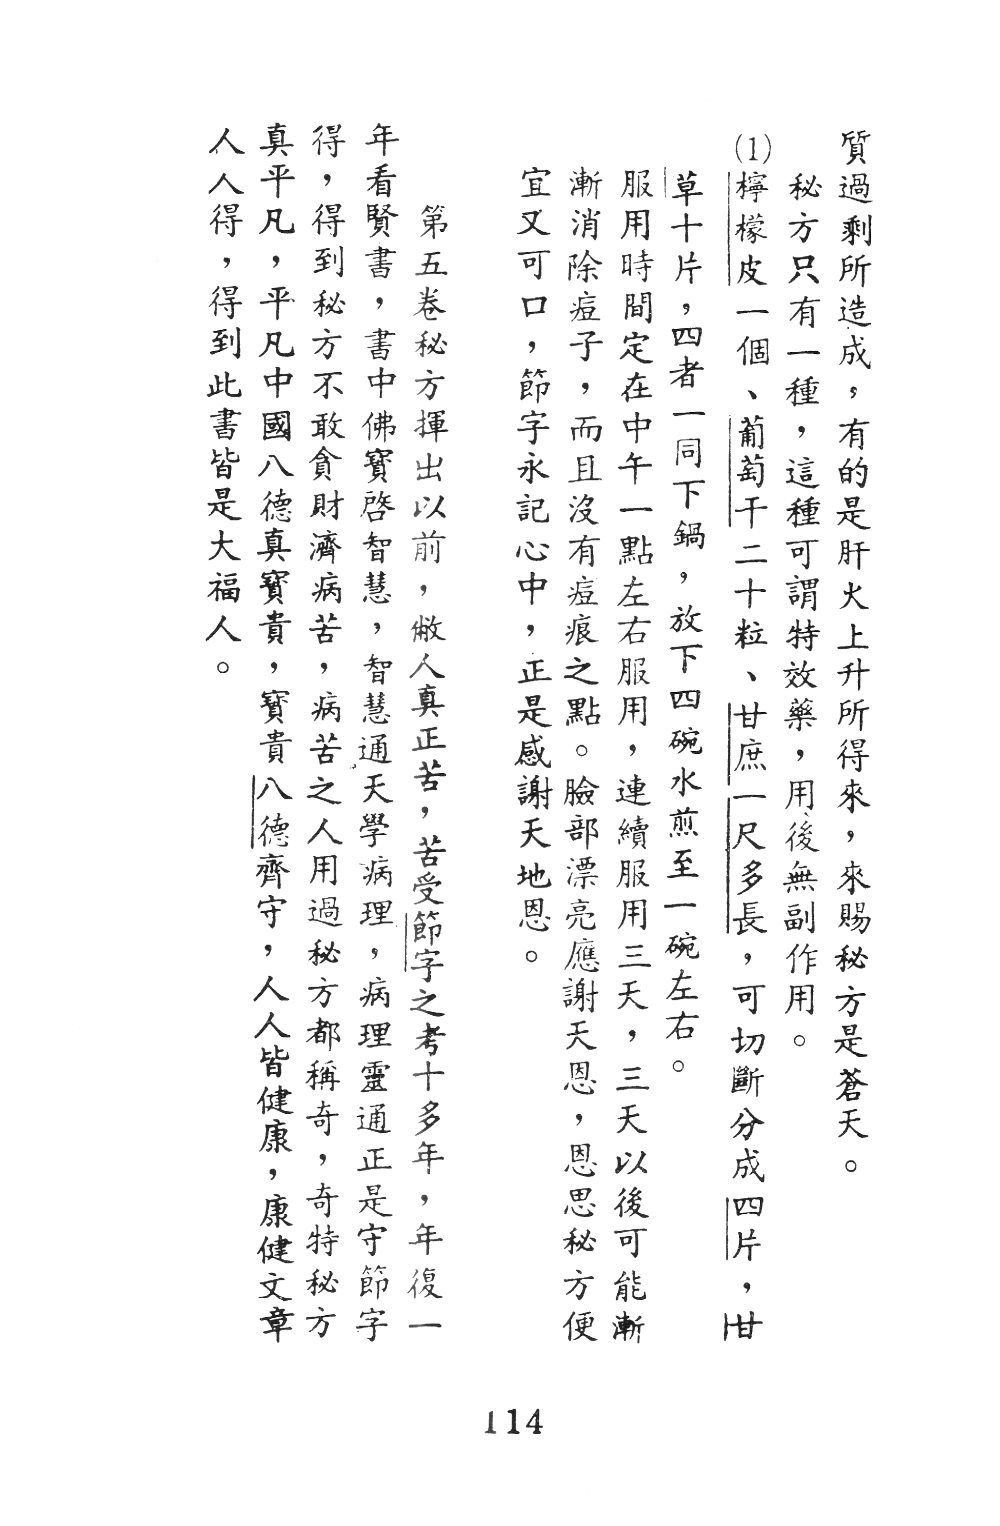 質過剩所造成，有的是肝火上升所得來，來賜秘方是蒼天。
秘方只有一種，這種可謂特效藥，用後無副作用。
(1)檸檬皮一個、葡萄干二十粒、甘庶一尺多長，可切斷分成四片，甘
草十片，四者一同下鍋，放下四碗水煎至一碗左右。
服用時間定在中午一點左右服用，連續服用三天，三天以後可能漸
漸消除痘子，而且沒有痘痕之點。臉部漂亮應謝天恩，恩思秘方便
宜又可口，節字永記心中，正是感謝天地恩。
第五卷秘方揮出以前，敝人真正苦，苦受節字之考十多年，年復一
年看賢書，書中佛寶啓智慧，智慧通天學病理，病理靈通正是守節字
得，得到秘方不敢貪財濟病苦，病苦之人用過秘方都稱奇，奇特秘方
真平凡，平凡中國八德真寶貴，寶貴八德齊守，人人皆健康，康健文章
人人得，得到此書皆是大福人。
114